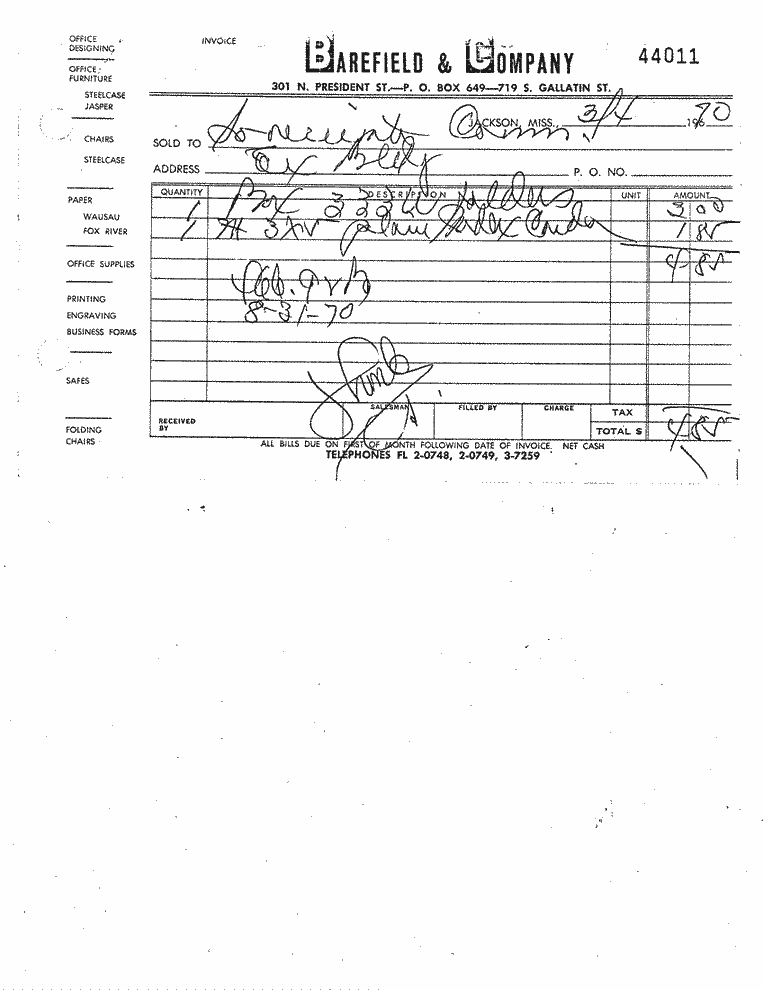 INVOICE
BAREFIELD & COMPANY
44011
301 N. PRESIDENT ST.—P. O. BOX 649—719 S. GALLATIN ST.
OFFICE DESIGNING
OFFICE FURNITURE
STEELCASE
JASPER
CHAIRS
STEELCASE
PAPER
WAUSAU
FOX RIVER
OFFICE SUPPLIES
PRINTING
ENGRAVING
BUSINESS FORMS
SAFES
FOLDING CHAIRS
JACKSON, MISS., 3/4 1970
SOLD TO Sovereignty Comm.
ADDRESS
P. O. NO.
QUANTITY DESCRIPTION UNIT AMOUNT
1 Box folders 3 00
1 3x5 plain Index Cards 1 85
4 85
8-31-70
RECEIVED BY SALESMAN FILLED BY CHARGE TAX
TOTAL $ 4 85
ALL BILLS DUE ON FIRST OF MONTH FOLLOWING DATE OF INVOICE. NET CASH
TELEPHONES FL 2-0748, 2-0749, 3-7259